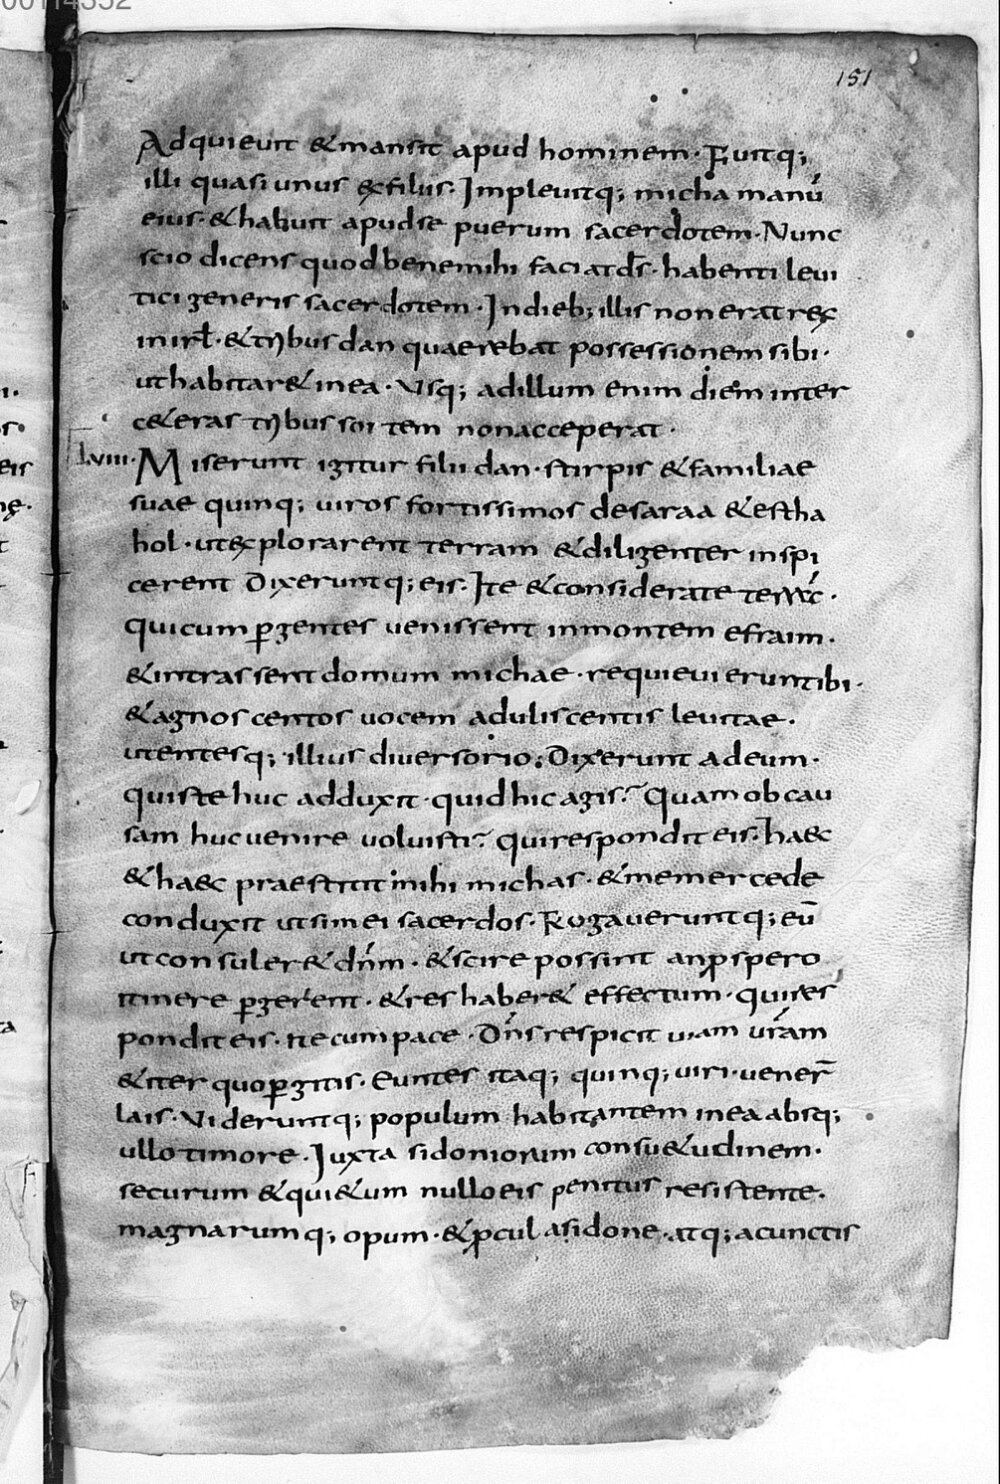 00114352
151
Adquieuit & mansit apud hominem · Fuitq;
illi quasi unus ex filiis · Impleuitq; micha manū
eius · & habuit apud se puerum sacerdotem · Nunc
scio dicens quod bene mihi faciat d̄s · habenti leui
tici generis sacerdotem · In dieb; illis non erat rex
in irl̄ · & tribus dan quaerebat possessionem sibi ·
ut habitar& in ea · Usq; ad illum enim diem inter
c&eras tribus sortem non acceperat ·
lviii · Miserunt igitur filii dan · stirpis & familiae
suae quinq; uiros fortissimos de saraa & estha
hol · ut explorarent terram & diligenter inspi
cerent Dixeruntq; eis · Ite & considerate terrā ·
qui cum p̱gentes uenissent in montem efraim ·
& intrassent domum michae · requieuierunt ibi ·
& agnoscentos uocem aduliscentis leuitae ·
utentesq; illius diuersorio · Dixerunt ad eum ·
quis te huc adduxit · quid hic agis? Quam ob cau
sam huc uenire uoluisti? Qui respondit eis · haec
& haec praestitit mihi michas · & me mercede
conduxit ut sim ei sacerdos · Rogaueruntq; eū
ut consuler& dn̄m · & scire possint an ꝓspero
itinere p̱gerent · & res haber& effectum · qui res
pondit eis · ite cum pace · Dn̄s respicit uiam ur̄am
& iter quo p̱gitis · Euntes itaq; quinq; uiri · uener̄
lais · Uideruntq; populum habitantem in ea absq;
ullo timore · Iuxta sidoniorum consu&udinem ·
securum & qui&um nullo eis penitus resistente ·
magnarumq; opum · & ꝓcul a sidone · atq; a cunctis